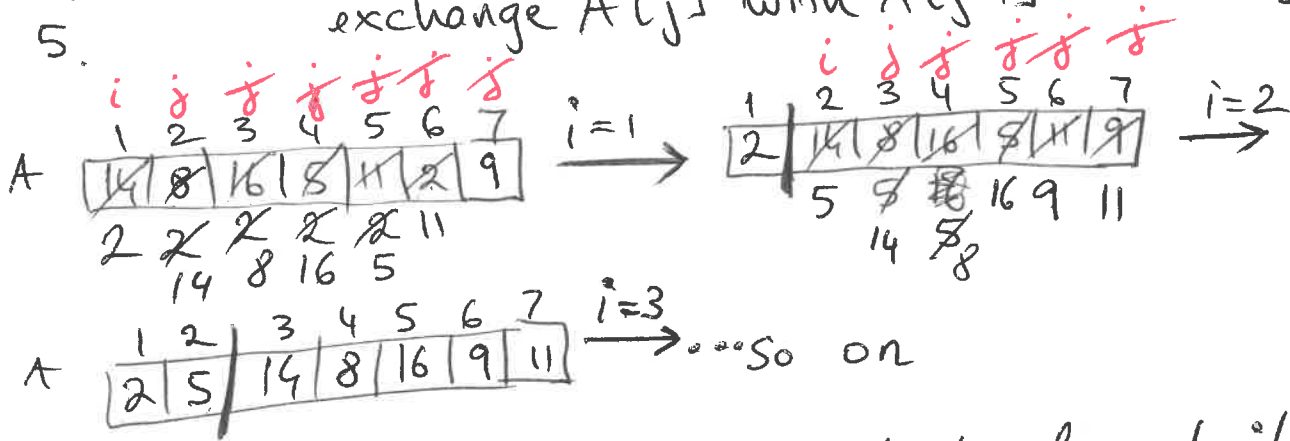 exchange A[j] with A[j
5.
i j j j j j j
1 2 3 4 5 6 7
A 14 8 16 5 11 2 9
2 2 2 2 2 11
14 8 16 5
i=1
i j j j j j
1 2 3 4 5 6 7
2 14 8 16 5 11 9
5 5 16 9 11
14 5 8
i=2
1 2 3 4 5 6 7
A 2 5 14 8 16 9 11
i=3
...so on